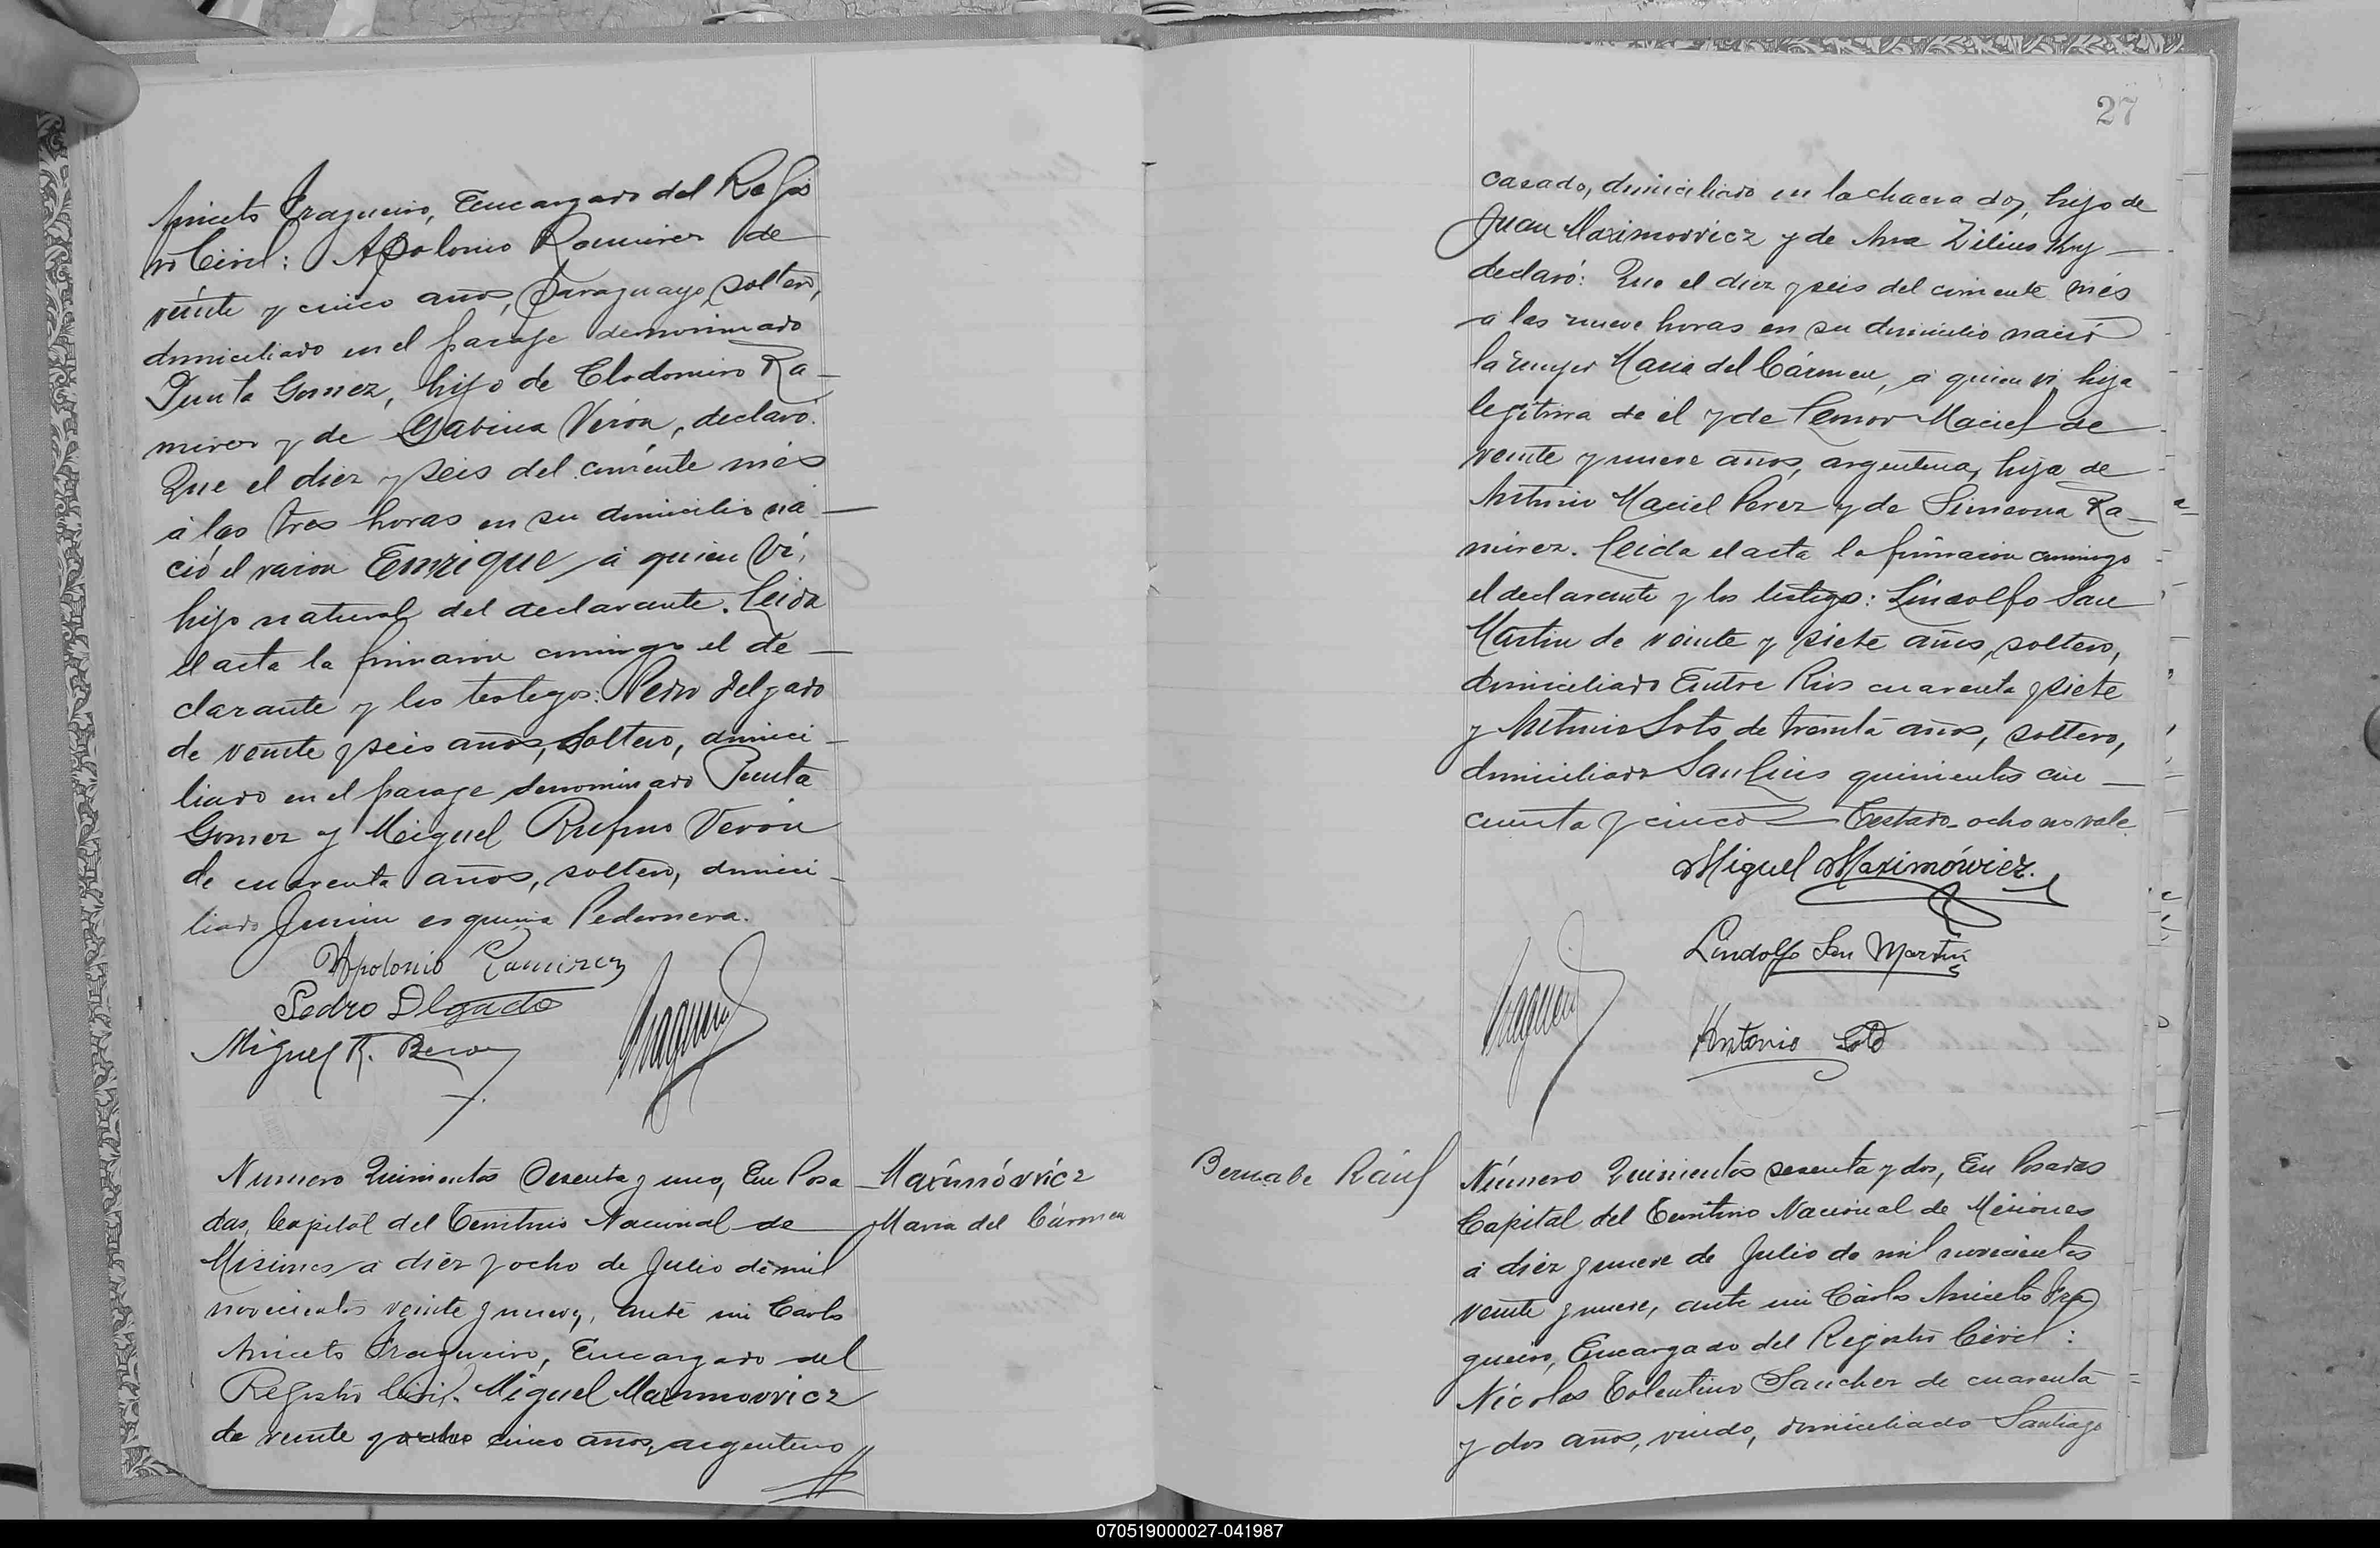 Aniceto Fragueiro, Encargado del Regis
tro Civil: Apolonio Ramirez de
veinte y cinco años, paraguayo, soltero,
domiciliado en el paraje denominado
Punta Gomez, hijo de Clodomiro Ra-
mirez y de Gabina Verón, declaró:
Que el diez y seis del corriente més
á las tres horas en su domicilio na-
ció el varon Enrique, á quien vi,
hijo natural del declarante. Leida
el acta la firmaron conmigo el de-
clarante y los testigos: Pedro Delgado
de veinte y seis años, soltero, domici-
liado en el parage denominado Punta
Gomez y Miguel Rufino Verón
de cuarenta años, soltero, domici-
liado Junin esquina Pedernera.
Apolonio Ramirez
Pedro Delgado
Miguel R. Beron
Fragueiro
Maximóvricz
Maria del Cármen
Numero Quinientos Sesenta y uno, En Posa
das, Capital del Territorio Nacional de
Misiones a diez y ocho de Julio de mil
novecientos veinte y nueve, ante mi Carlos
Aniceto Fragueiro, Encargado del
Registro Civil. Miguel Maximovricz
de veinte y ocho cinco años, argentino
27
casado, domiciliado en la chacra dos, hijo de
Juan Maximovricz y de Ana
declaró: Que el diez y seis del corriente més
a las nueve horas en su domicilio nació
la mujer Maria del Cármen, á quien vi, hija
legitima de él y de Leonor Maciel de
veinte y nueve años, argentina, hija de
Antonio Maciel Perez y de Simeona Ra-
mirez. Leida el acta la firmaron conmigo
el declarante y los testigos: Lindolfo San
Martin de veinte y siete años, soltero,
domiciliado Entre Rios cuarenta y siete
y Antonio Soto de treinta años, soltero,
domiciliado San Luis quinientos cin-
cuenta y cinco — Testado-ocho no vale
Miguel Maximówicz.
Lindolfo San Martin
Fragueiro
Antonio Soto
Bernabe Raúl
Número Quinientos sesenta y dos, En Posadas
Capital del Territorio Nacional de Misiones
a diez y nueve de Julio de mil novecientos
veinte y nueve, ante mi Carlos Aniceto Fra
gueiro, Encargado del Registro Civil:
Nicolas Tolentino Sanchez de cuarenta
y dos años, viudo, domiciliado Santiago
070519000027-041987